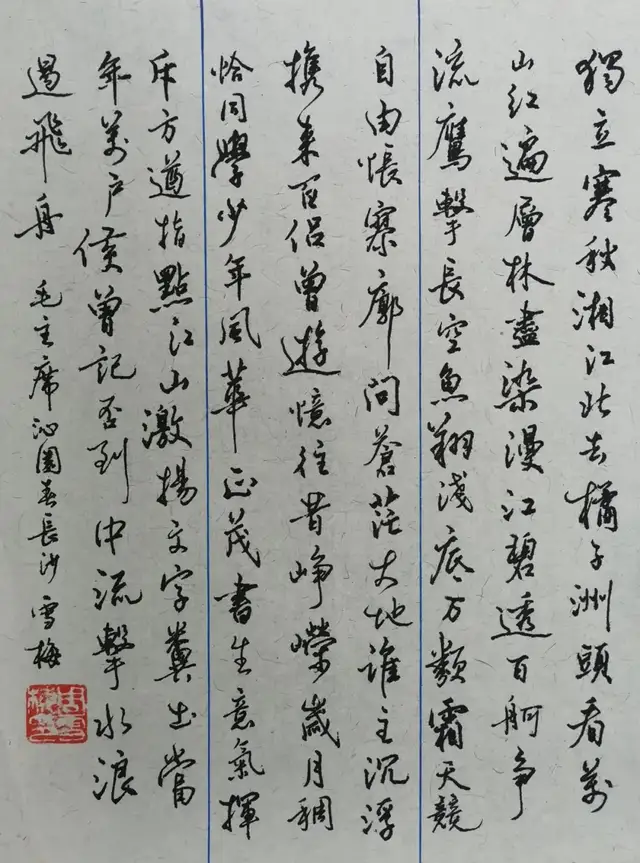 獨立寒秋湘江北去橘子洲頭看萬
山红遍層林盡染漫江碧透百舸争
流鷹擊長空魚翔淺底万類霜天競
自由悵寥廓问蒼茫大地誰主沉浮
携来百侣曾遊憶往昔峥嶸歲月稠
恰同學少年風華正茂書生意氣揮
斥方遒指點江山激揚文字糞土當
年萬户侯曾記否到中流擊水浪
遏飛舟 毛主席沁園春長沙 雪梅